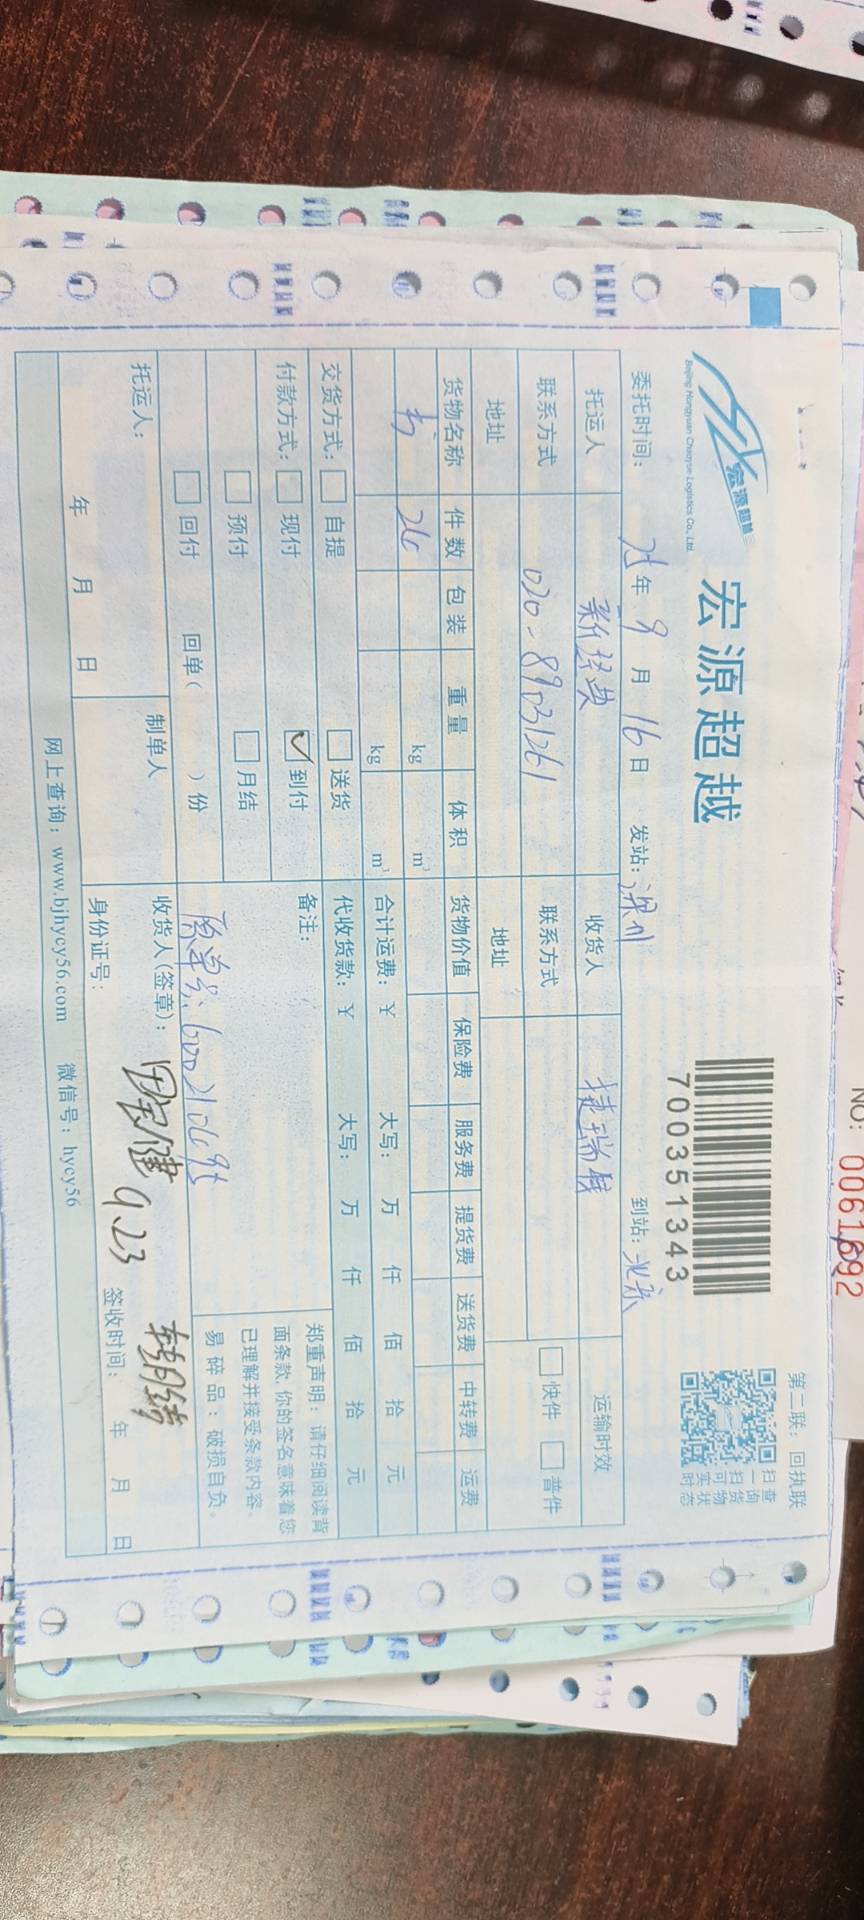 第二联：回执联
宏源超越
Beijing Hongyuan Chaoyue Logistics Co., Ltd.
宏源超越
700351343
扫一扫可查询货物实时状态
委托时间：25年9月16日 发站：深圳 到站：北京
托运人 新经典 收货人 捷瑞 运输时效
联系方式 020-89031261 联系方式 快件 普件
地址 地址
货物名称 件数 包装 重量 体积 货物价值 保险费 服务费 提货费 送货费 中转费 运费
书 26 kg m³
kg m³ 合计运费：¥ 大写： 万 仟 佰 拾 元
交货方式： 自提 送货 代收货款：¥ 大写： 万 仟 佰 拾 元
付款方式： 现付 ✓到付 备注：
预付 月结
回付 回单（ ）份
原单号：
郑重声明：请仔细阅读背
面条款，你的签名意味着您
已理解并接受条款内容。
易碎品：破损自负。
托运人： 制单人 收货人(签章)：
年 月 日 身份证号： 9.23 签收时间： 年 月 日
网上查询：www.bjhycy56.com 微信号：hycy56
NO: 0061692